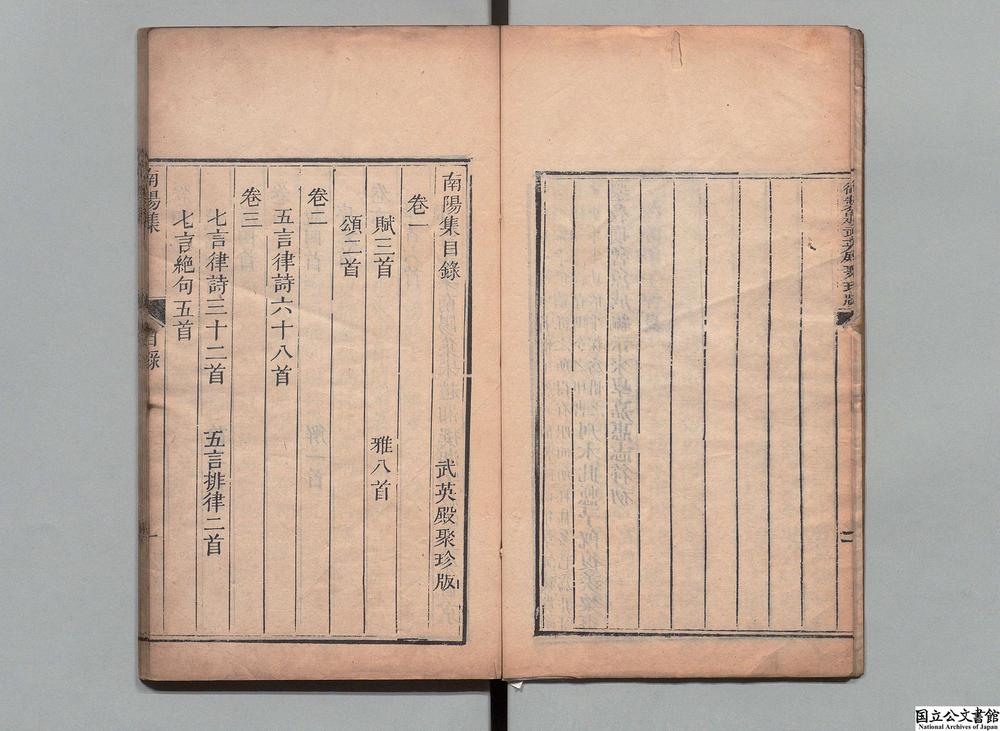 南陽集目錄 武英殿聚珍版
卷一
賦三首 雅八首
頌二首
卷二
五言律詩六十八首
卷三
七言律詩三十二首 五言排律二首
七言絶句五首
南陽集 目錄 一
国立公文書館
National Archives of Japan